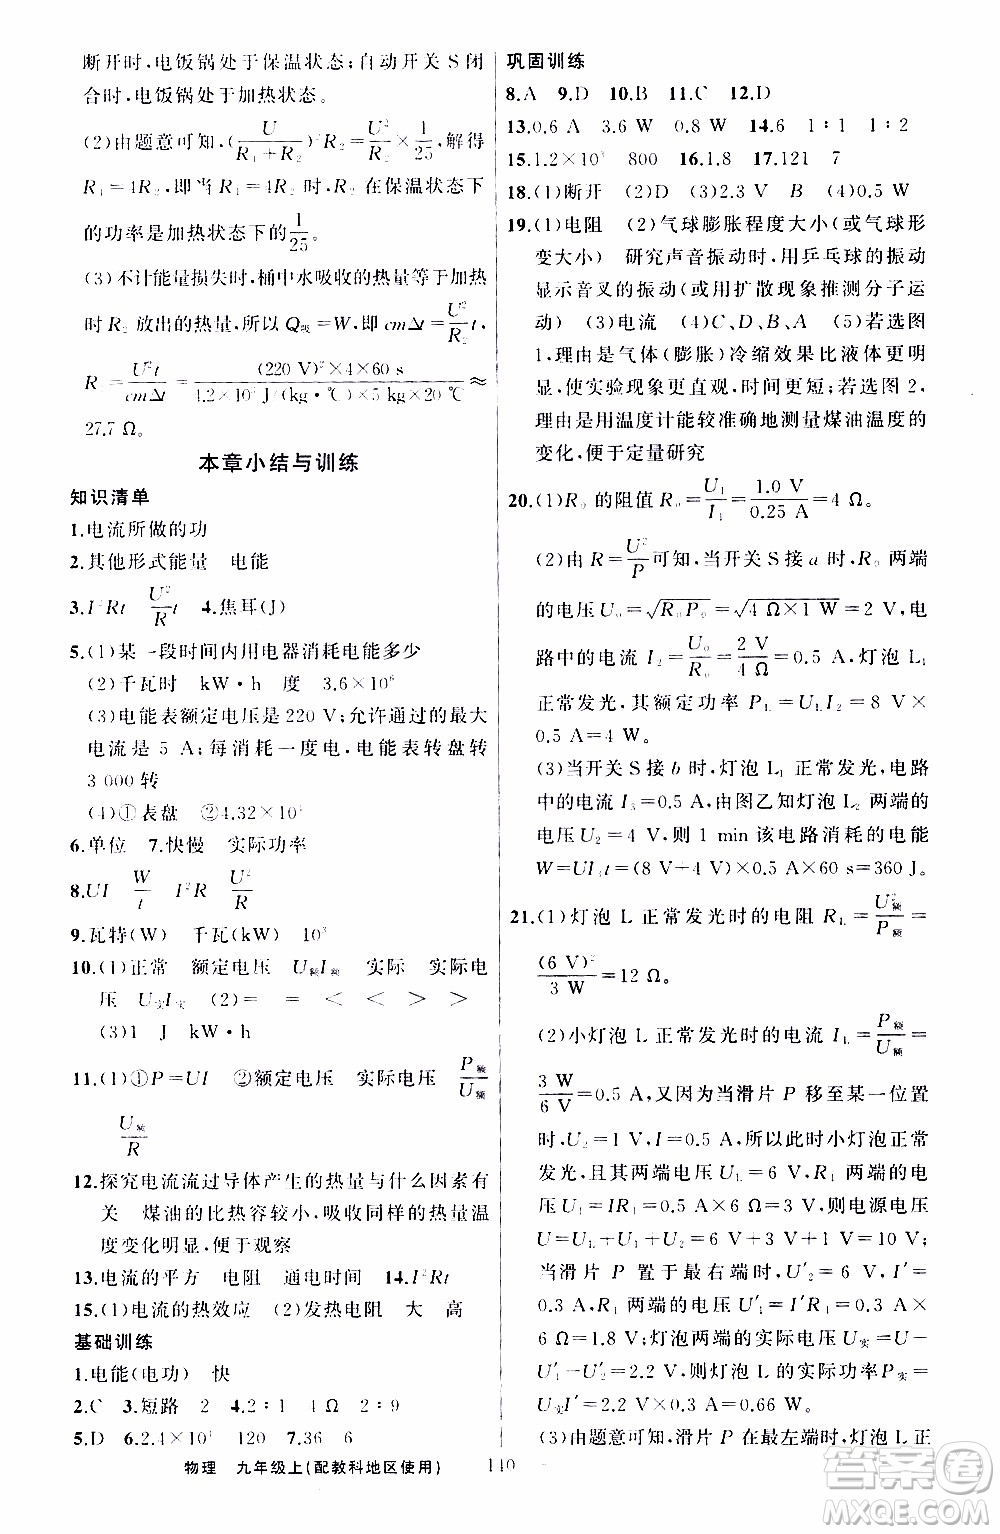 断开时,电饭锅处于保温状态;自动开关 S 闭
合时,电饭锅处于加热状态。
(2)由题意可知,(U/(R₁+R₂))²R₂=U²/R₂×1/25,解得
R₁=4R₂,即当 R₁=4R₂时,R₂ 在保温状态下
的功率是加热状态下的1/25。
(3)不计能量损失时,桶中水吸收的热量等于加热
时 R₂ 放出的热量,所以 Q吸=W,即 cmΔt=U²/R₂ t,
R=U²t/cmΔt=(220 V)²×4×60 s/4.2×10³ J/(kg·℃)×5 kg×20 ℃≈
27.7 Ω。
本章小结与训练
知识清单
1.电流所做的功
2.其他形式能量 电能
3.I²Rt U²/R t 4.焦耳(J)
5.(1)某一段时间内用电器消耗电能多少
(2)千瓦时 kW·h 度 3.6×10⁶
(3)电能表额定电压是 220 V;允许通过的最大
电流是 5 A;每消耗一度电,电能表转盘转
3 000 转
(4)①表盘 ②4.32×10³
6.单位 7.快慢 实际功率
8.UI W/t I²R U²/R
9.瓦特(W) 千瓦(kW) 10³
10.(1)正常 额定电压 U额I额 实际 实际电
压 U实I实 (2)= = < < > >
(3)1 J kW·h
11.(1)①P=UI ②额定电压 实际电压 P额/U额
U额/R
12.探究电流流过导体产生的热量与什么因素有
关 煤油的比热容较小,吸收同样的热量温
度变化明显,便于观察
13.电流的平方 电阻 通电时间 14.I²Rt
15.(1)电流的热效应 (2)发热电阻 大 高
基础训练
1.电能(电功) 快
2.C 3.短路 2 4.2:1 4 Ω 2:9
5.D 6.2.4×10³ 120 7.36 6
巩固训练
8.A 9.D 10.B 11.C 12.D
13.0.6 A 3.6 W 0.8 W 14.6 1:1 1:2
15.1.2×10³ 800 16.1.8 17.121 7
18.(1)断开 (2)D (3)2.3 V B (4)0.5 W
19.(1)电阻 (2)气球膨胀程度大小(或气球形
变大小) 研究声音振动时,用乒乓球的振动
显示音叉的振动(或用扩散现象推测分子运
动) (3)电流 (4)C、D、B、A (5)若选图
1,理由是气体(膨胀)冷缩效果比液体更明
显,使实验现象更直观,时间更短;若选图 2,
理由是用温度计能较准确地测量煤油温度的
变化,便于定量研究
20.(1)R₀ 的阻值 R₀=U₁/I₁=1.0 V/0.25 A=4 Ω。
(2)由 R=U²/P可知,当开关 S 接 a 时,R₀ 两端
的电压 U₀=√R₀P₀=√4 Ω×1 W=2 V,电
路中的电流 I₂=U₀/R₀=2 V/4 Ω=0.5 A,灯泡 L₁
正常发光,其额定功率 PL=ULI₂=8 V×
0.5 A=4 W。
(3)当开关 S 接 b 时,灯泡 L₁ 正常发光,电路
中的电流 I₃=0.5 A,由图乙知灯泡 L₂ 两端的
电压 U₂=4 V,则 1 min 该电路消耗的电能
W=UI₃t=(8 V+4 V)×0.5 A×60 s=360 J。
21.(1)灯泡 L 正常发光时的电阻 RL=U额²/P额=
(6 V)²/3 W=12 Ω。
(2)小灯泡 L 正常发光时的电流 IL=P额/U额=
3 W/6 V=0.5 A,又因为当滑片 P 移至某一位置
时,U₂=1 V,I=0.5 A,所以此时小灯泡正常
发光,且其两端的电压 UL=6 V,R₁ 两端的电
压 U₁=IR₁=0.5 A×6 Ω=3 V,则电源电压
U=UL+U₁+U₂=6 V+3 V+1 V=10 V;
当滑片 P 置于最右端时,U′₂=6 V,I′=
0.3 A,R₁ 两端的电压 U′₁=I′R₁=0.3 A×
6 Ω=1.8 V;灯泡两端的实际电压 U实=U−
U′₁−U′₂=2.2 V,则灯泡 L 的实际功率 P实=
U实I′=2.2 V×0.3 A=0.66 W。
(3)由题意可知,当 P 在最左端时,灯泡正常
物理 九年级上(配教科地区使用) 140
答案圈
MXQE.COM